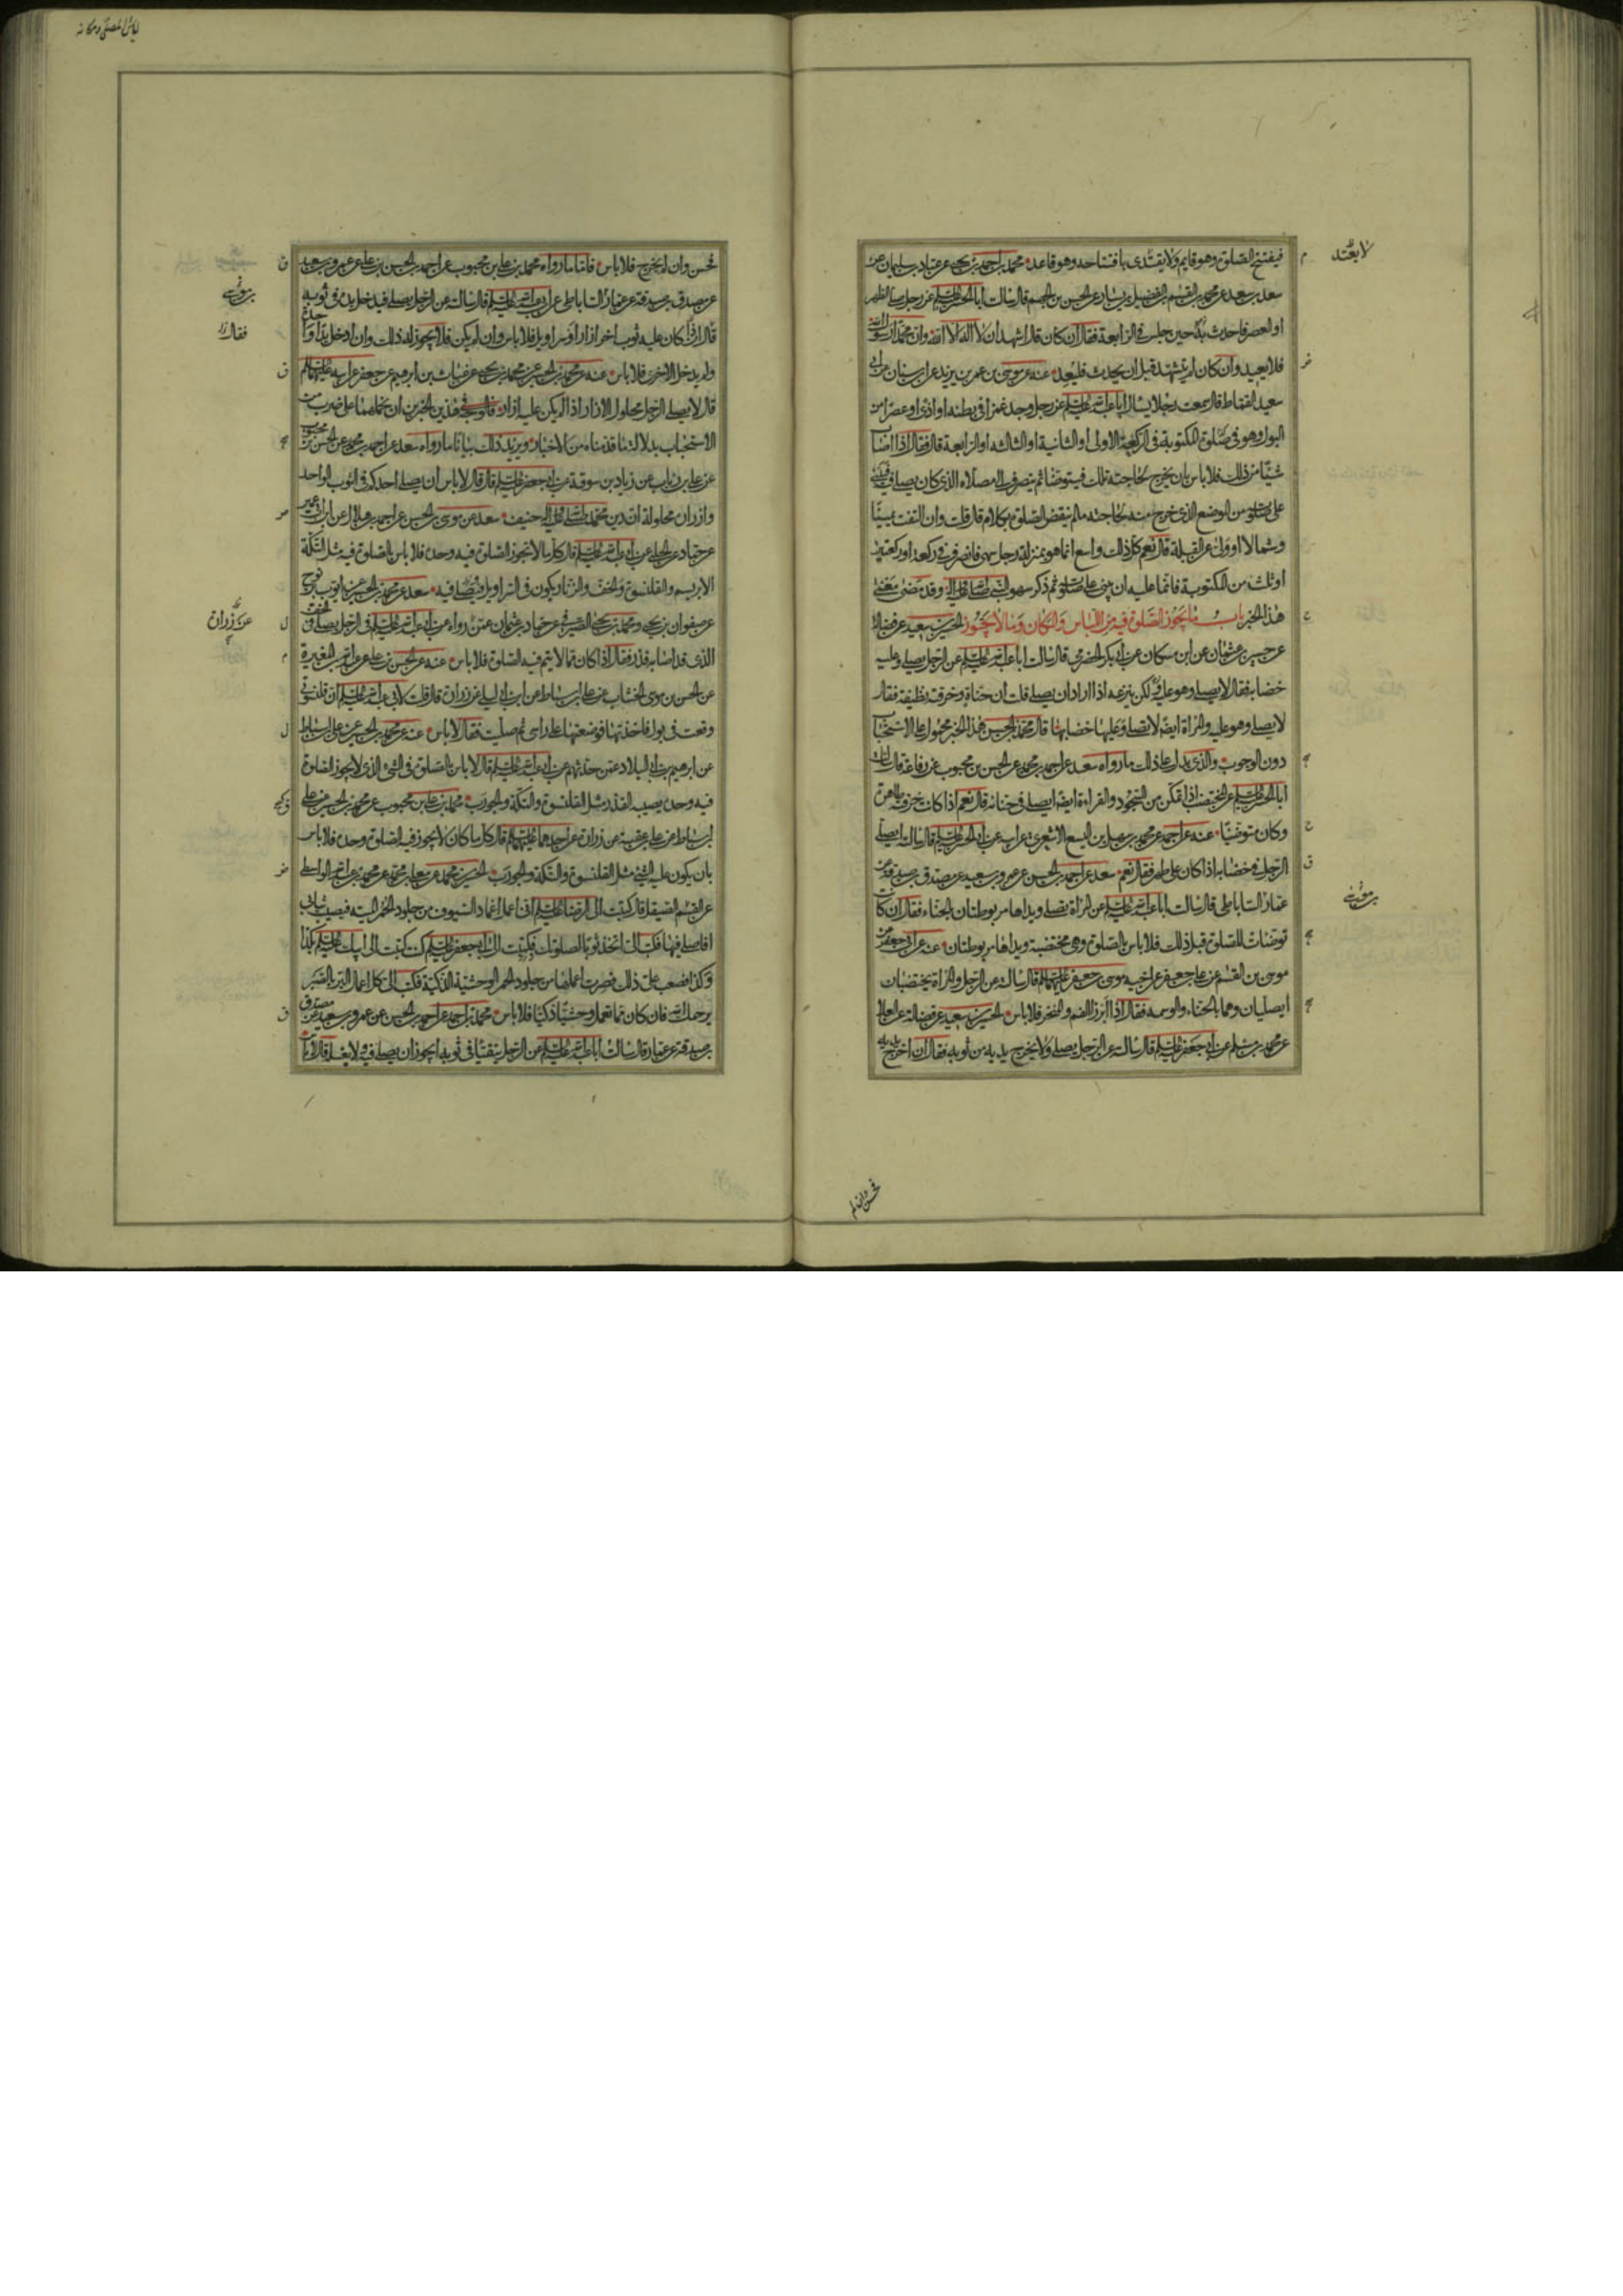 لا يعتد
فيفتتح الصلوة وهو قايم ولا يقتدى بافتتاحه وهو قاعد محمد بن احمد بن يحيى عن عباد بن سليمان عن
سعد بن سعد عن محمد بن القسم بن الفضيل بن يسار عن الحسن بن الجهم قال سالت ابا الحسن عليه السلم عن رجل صلى الظهر
او العصر فاحدث حين جلس في الرابعة فقال ان كان قال اشهد ان لا اله الا الله وان محمدا رسول الله
فلا يعيد وان كان لم يتشهد قبل ان يحدث فليعد عنه عن موسى بن عمر بن يزيد عن ابن سنان عن ابي
سعيد القماط قال سمعت رجلا يسال ابا عبد الله عليه السلم عن رجل وجد غمزا في بطنه او اذى او عصرا من
البول وهو في صلوة المكتوبة في الركعة الاولى او الثانية او الثالثه او الرابعة قال فقال اذا اصاب
شيئا من ذلك فلا باس بان يخرج لحاجته تلك فيتوضا ثم ينصرف الى مصلاه الذى كان يصلى فيه فيبنى
على صلوته من الموضع الذى خرج منه لحاجته ما لم ينقض الصلوة بكلام قال قلت وان التفت يمينا
وشمالا او ولى عن القبلة قال نعم كل ذلك واسع انما هو بمنزلة رجل سهى فانصرف في ركعة او ركعتين
او ثلث من المكتوبة فانما عليه ان يبنى على صلوته ثم ذكر سهو النبى صلى الله عليه واله وقد مضى معنى
هذا الخبر باب ما يجوز الصلوة فيه من اللباس والمكان وما لا يجوز الحسين بن سعيد عن فضالة
عن حسين بن عثمان عن ابن مسكان عن ابى بكر الحضرمى قال سالت ابا عبد الله عليه السلم عن الرجل يصلى وعليه
خضابه فقال لا يصلى وهو عليه ولكن ينزعه اذا اراد ان يصلى قلت ان حناه وخرقته نظيفة فقال
لا يصلى وهو عليه والمراة ايضا لا تصلى وعليها خضابها قال محمد بن الحسن هذا الخبر محمول على الاستحباب
دون الوجوب والذى يدل على ذلك ما رواه سعد عن احمد بن محمد عن الحسن بن محبوب عن رفاعة قال سالت
ابا الحسن عليه السلم عن المختضب اذا تمكن من السجود والقراءة ايضا ايصلى في حنائه قال نعم اذا كانت خرقته طاهرة
وكان متوضئا عنه عن احمد عن محمد بن سهل بن اليسع الاشعرى عن ابيه عن ابى الحسن عليه السلم قال سالته ايصلى
الرجل في خضابه اذا كان على طهر فقال نعم سعد عن احمد بن الحسن عن عمرو بن سعيد عن مصدق بن صدقة عن
بن موسى
عمار الساباطى قال سالت ابا عبد الله عليه السلم عن المراة تصلى ويداها مربوطتان بالحناء فقال ان كانت
توضات للصلوة قبل ذلك فلا باس بالصلوة وهى مختضبة ويداها مربوطتان عنه عن ابى جعفر عن
موسى بن القسم عن على بن جعفر عن اخيه موسى بن جعفر عليهما السلم قال سالته عن الرجل والمراة يختضبان
ايصليان وهما بالحناء والوسمه فقال اذا ابرز الفم والمنخر فلا باس الحسين بن سعيد عن فضالة عن العلا
عن محمد بن مسلم عن ابى جعفر عليه السلم قال سالته عن الرجل يصلى ولا يخرج يديه من ثوبه فقال ان اخرج يديه
فحسن وان لم
لباس المصلى ومكانه
فحسن وان لم يخرج فلا باس فاما ما رواه محمد بن على بن محبوب عن احمد بن الحسن بن على عن عمرو بن سعيد
بن موسى
عن مصدق بن صدقة عن عمار الساباطى عن ابى عبد الله عليه السلم قال سالته عن الرجل يصلى فيدخل يده في ثوبه
فقال
قال ان كان عليه ثوب اخر ازار او سراويل فلا باس وان لم يكن فلا يجوز له ذلك وان ادخل يدا واحدة
ولم يدخل الاخرى فلا باس عنه عن محمد بن الحسين عن محمد بن يحيى عن غياث بن ابرهيم عن جعفر عن ابيه عليهما السلم
قال لا يصلى الرجل محلول الازرار اذا لم يكن عليه ازار فالوجه في هذين الخبرين ان نحملهما على ضرب من
الاستحباب بدلالة ما قدمناه من الاخبار ويزيد ذلك بيانا ما رواه سعد عن احمد بن محمد عن الحسن بن محبوب
عن على بن رئاب عن زياد بن سوقة عن ابى جعفر عليه السلم قال قال لا باس ان يصلى احدكم في الثوب الواحد
وازراره محلولة ان دين محمد صلى الله عليه واله حنيف سعد عن موسى بن الحسن عن احمد بن هلال عن ابن ابى عمير
عن حماد عن الحلبى عن ابى عبد الله عليه السلم قال كل ما لا تجوز الصلوة فيه وحده فلا باس بالصلوة فيه مثل التكة
الابريسم والقلنسوة والخف والزنار يكون في السراويل ويصلى فيه سعد عن محمد بن الحسين عن ايوب بن نوح
عن صفوان بن يحيى ومحمد بن يحيى الصيرفى عن حماد بن عثمان عمن رواه عن ابى عبد الله عليه السلم في الرجل يصلى في الخف
عن زرارة
الذى قد اصابه قذر فقال اذا كان مما لا يتم فيه الصلوة فلا باس عنه عن الحسن بن على عن عبد الله بن المغيرة
عن الحسن بن موسى الخشاب عن على بن اسباط عن ابن ابى ليلى عن زرارة قال قلت لابى عبد الله عليه السلم ان قلنسوتى
وقعت في بول فاخذتها فوضعتها على راسى ثم صليت فقال لا باس عنه عن محمد بن الحسين عن على بن اسباط
عن ابرهيم بن ابى البلاد عمن حدثهم عن ابى عبد الله عليه السلم قال لا باس بالصلوة في الشىء الذى لا يجوز الصلوة
فيه وحده يصيب القذر مثل القلنسوة والتكة والجورب محمد بن على بن محبوب عن محمد بن الحسين عن على
بن اسباط عن على بن عقبة عن زرارة عن احدهما عليهما السلم قال كل ما كان لا يجوز فيه الصلوة وحده فلا باس
بان يكون عليه الشىء مثل القلنسوة والتكة والجورب الحسين بن محمد عن معلى بن محمد عن محمد بن عبد الله الواسطى
عن القسم الصيقل قال كتبت الى الرضا عليه السلم انى اعمل اغماد السيوف من جلود الحمر الميتة فيصيب ثيابى
افاصلى فيها فكتب الى اتخذ ثوبا لصلوتك فكتبت الى ابى جعفر عليه السلم كنت كتبت الى ابيك عليه السلم بكذا
وكذا فصعب على ذلك فصرت اعملها من جلود الحمر الوحشية الذكية فكتب الى كل اعمال البر بالصبر
يرحمك الله فان كان ما تعمل وحشيا ذكيا فلا باس محمد بن احمد عن احمد بن الحسن عن عمرو بن سعيد عن مصدق
بن صدقة عن عمار قال سالت ابا عبد الله عليه السلم عن الرجل يتقيا في ثوبه ايجوز ان يصلى فيه ولا يغسله قال لا باس